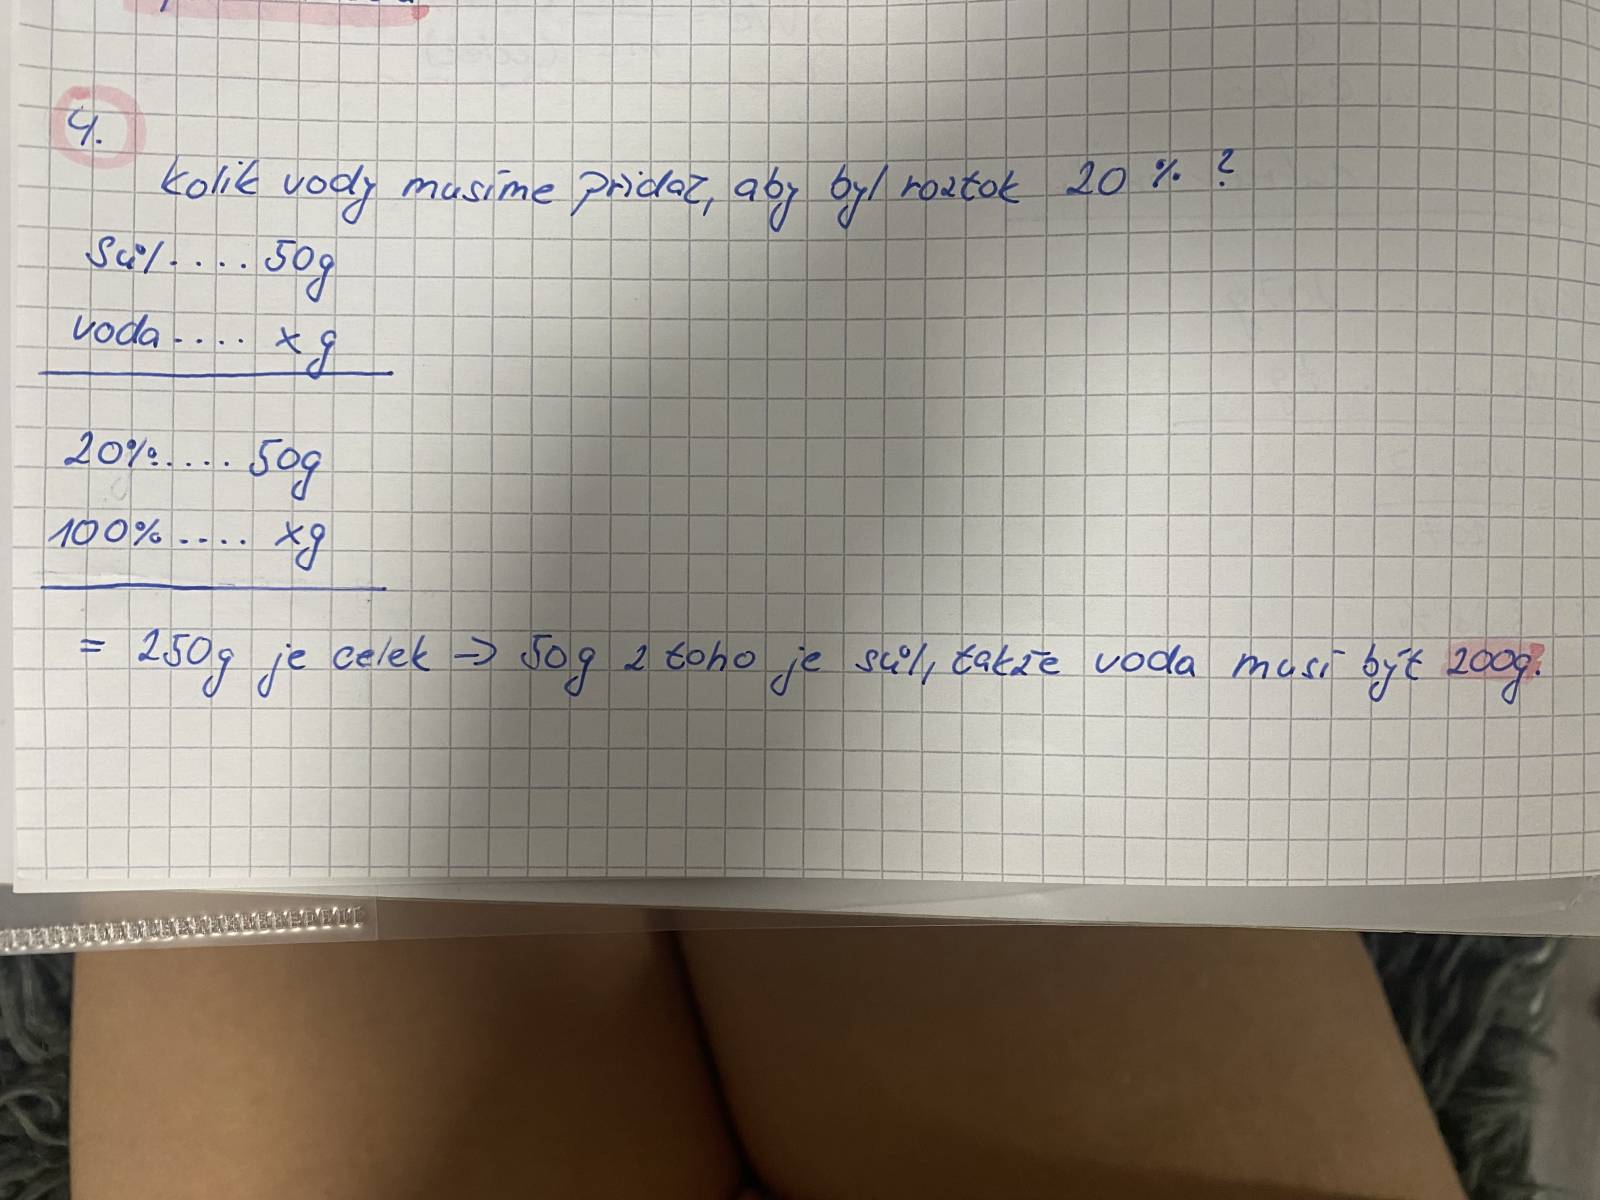 4.
kolik vody musíme přidat, aby byl roztok 20 % ?
sůl.... 50g
voda.... x g
20%.... 50g
100%.... xg
= 250g je celek → 50g z toho je sůl, takže voda musí být 200g.